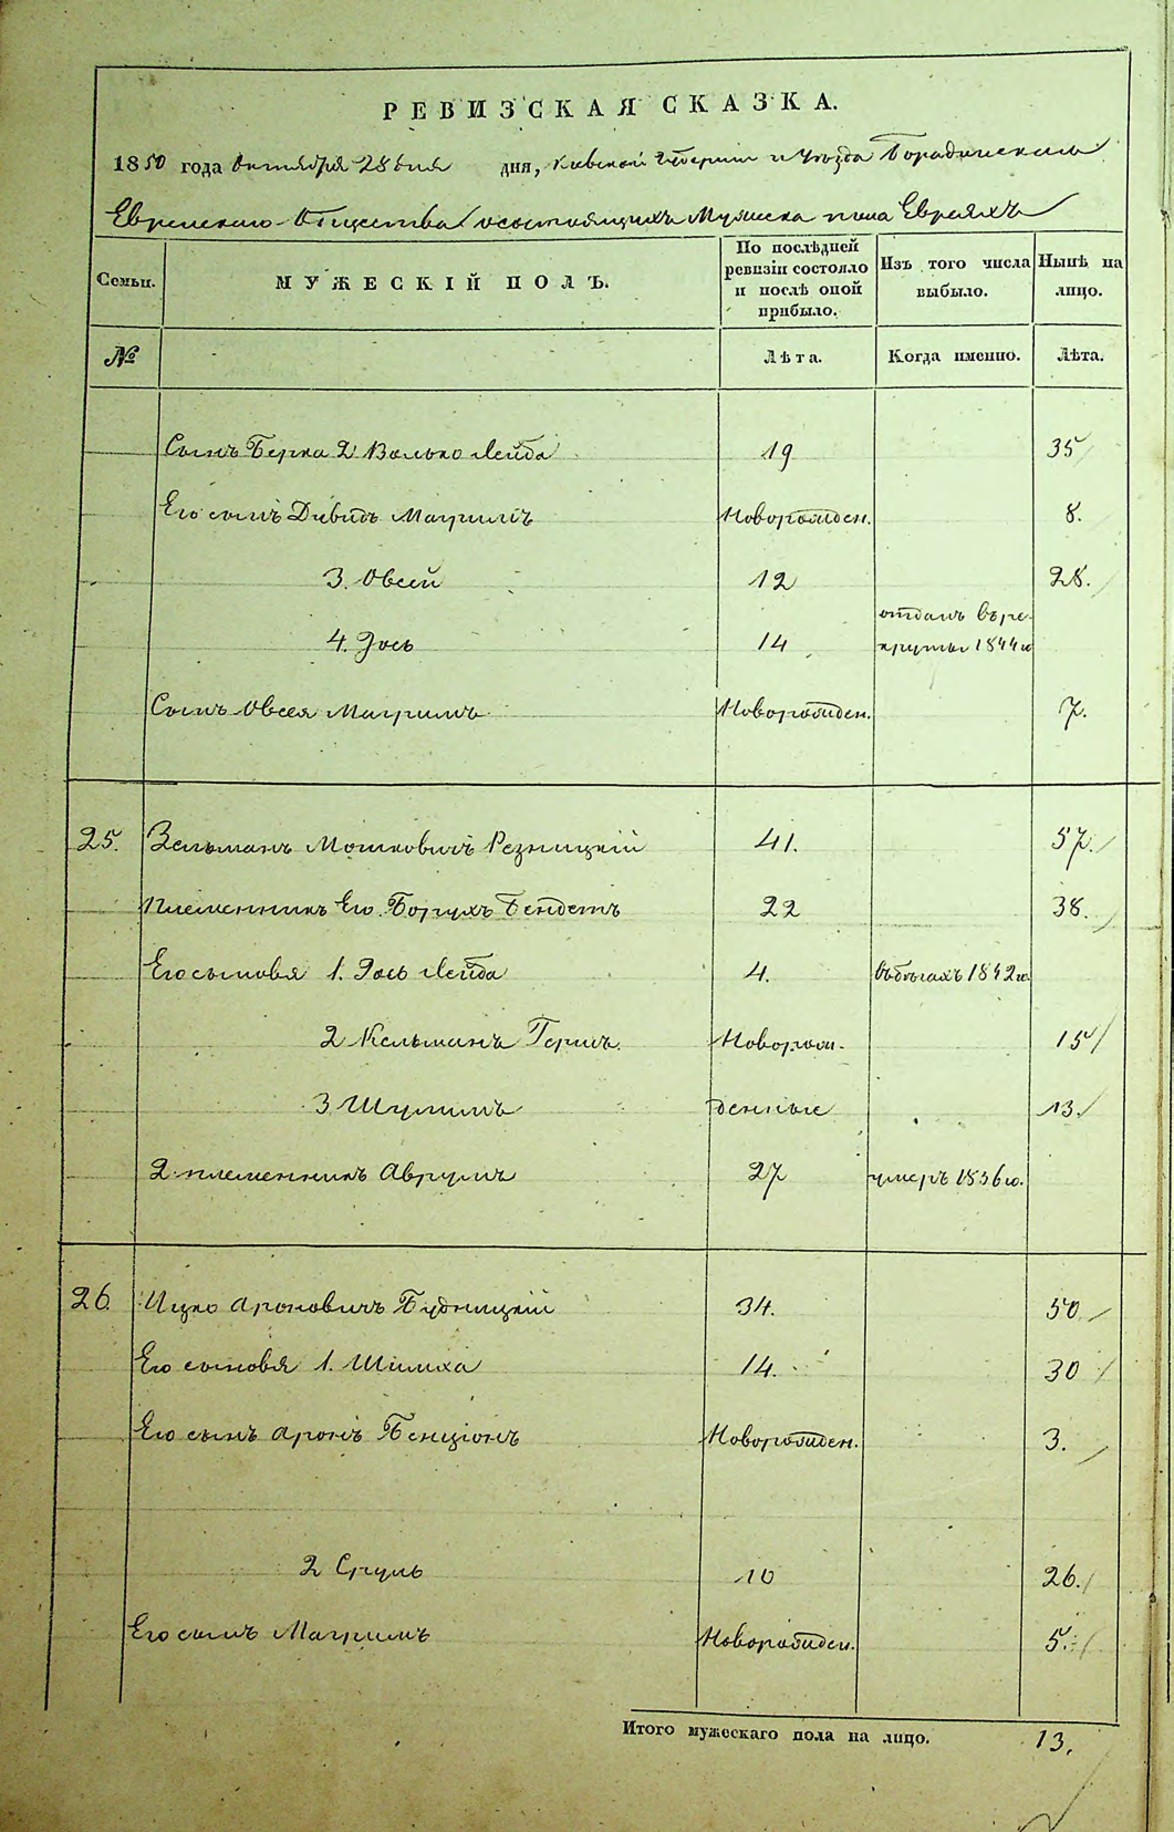 РЕВИЗСКАЯ СКАЗКА.
1850 года Октября 28 дня дня, Киевской Губернии и Уезда Бородянскаго
Еврейскаго Общества о состоящихъ Мужеска пола Евреяхъ
Семьи. МУЖЕСКІЙ ПОЛЪ. По послѣдней ревизіи состояло и послѣ оной прибыло. Изъ того числа выбыло. Нынѣ на лицо.
№ Лѣта. Когда именно. Лѣта.
Сынъ Берка 2 Волько Лейба 19 35
Его сынъ Дивидъ Маериимъ Новорожден. 8.
3. Овсей 12 28.
4. Іось 14 отданъ въ рекруты 1844 го
Сынъ Овсея Маеримъ Новорожден. 7.
25. Зельманъ Мошковичъ Резницкій 41. 57.
Племенникъ Его Борухъ Бендетъ 22 38.
Его сыновья 1. Іось Лейба 4. въ бегахъ 1842 го.
2 Кельманъ Гершъ Новорож- 15
3 Шулимъ денные 13.
2 племенникъ Аврумъ 27 умеръ 1836 го.
26. Ицко Ароновичъ Будницкій 34. 50
Его сыновья 1. Шимха 14. 30
Его сынъ Аронъ Бенціонъ Новорожден. 3.
2 Сруль 10 26.
Его сынъ Маеримъ Новорожден. 5.
Итого мужескаго пола на лицо. 13.